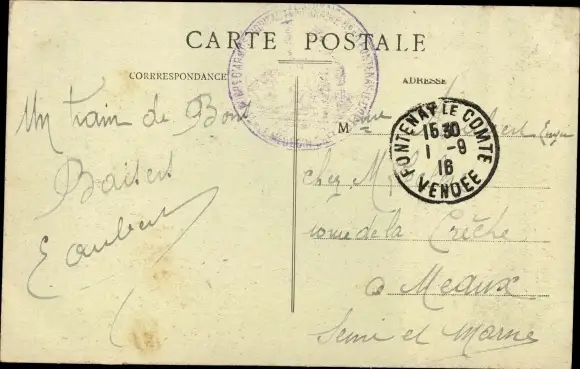 CARTE POSTALE
CORRRESPONDANCE
ADRESSE
Un train de Bons
Baisers
E Aubert
Mme Aubert
chez M
rue de la Crèche
a Meaux
Seine et Marne
FONTENAY LE COMTE
15 30
1 -9
16
VENDEE